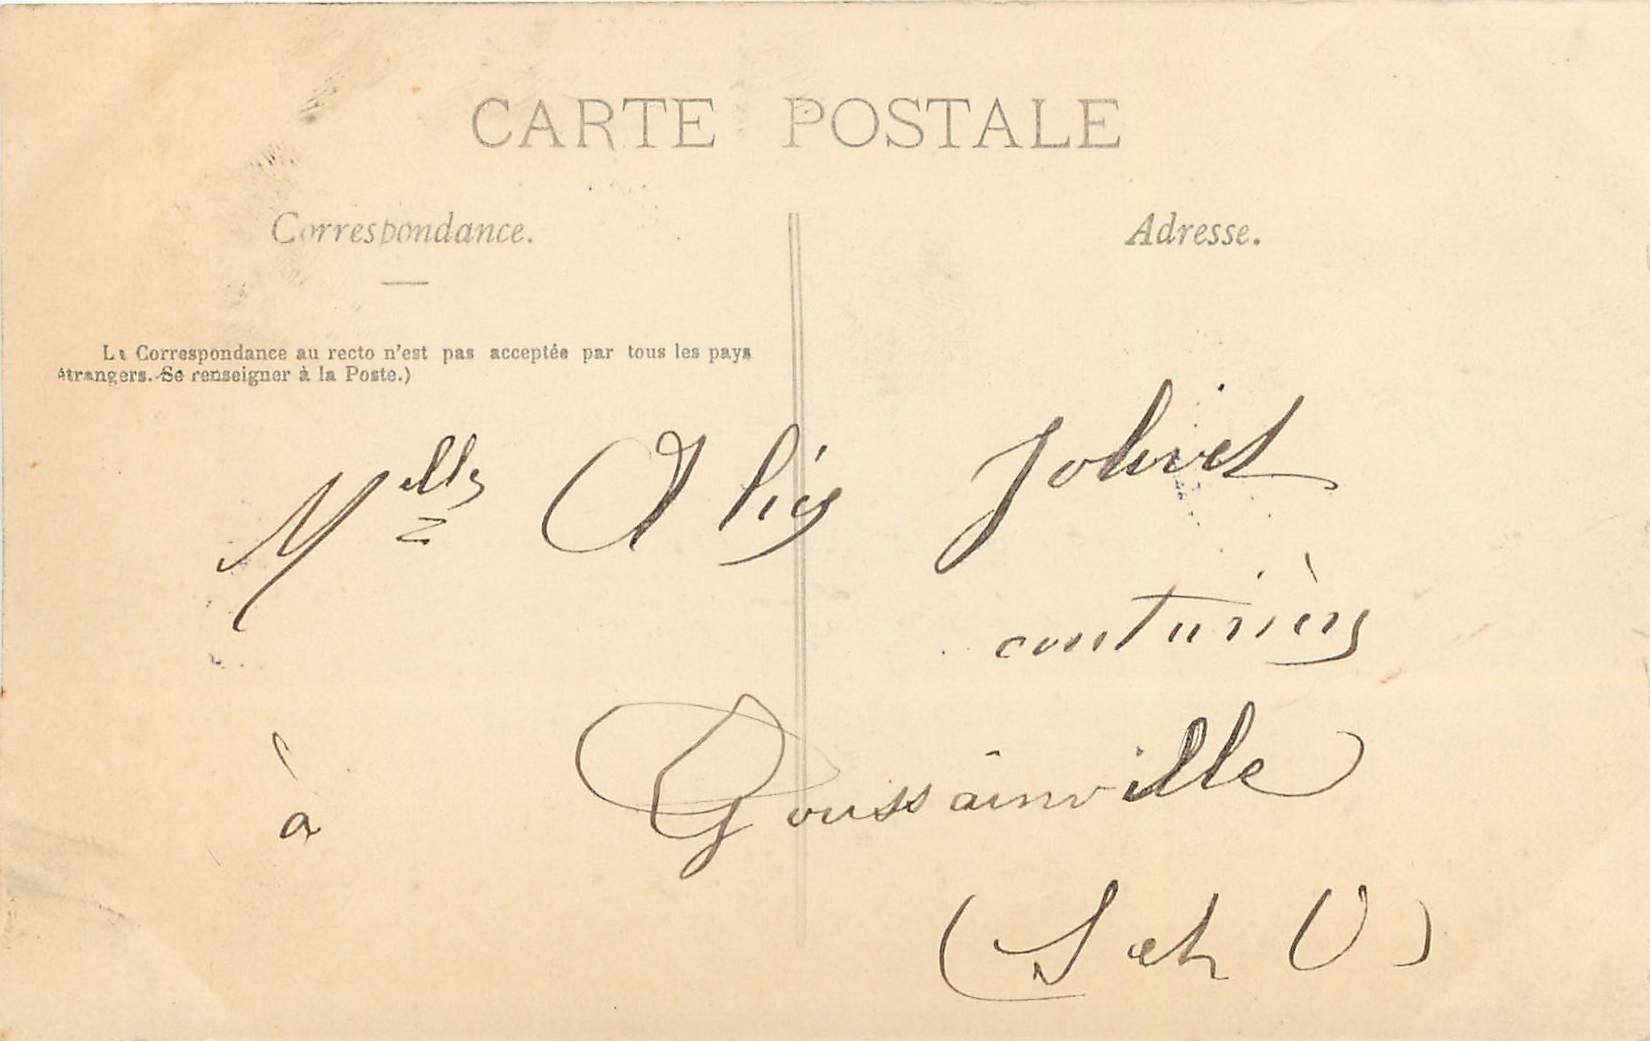 CARTE POSTALE
Correspondance.
Adresse.
La Correspondance au recto n'est pas acceptée par tous les pays
étrangers. Se renseigner à la Poste.)
Melle Alice Jolivet
couturière
à Goussainville
(S et O)